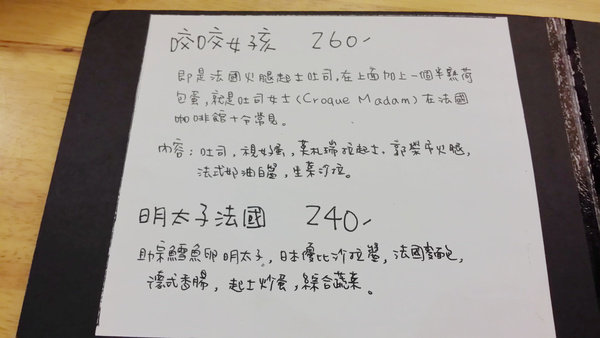 咬咬女孩 260-
即是法國火腿起士吐司,在上面加上一個半熟荷
包蛋,就是吐司女士(Croque Madam)在法國
咖啡館十分常見。
內容:吐司,視好蛋,莫札瑞拉起士,郭榮市火腿,
法式奶油白醬,生菜沙拉。
明太子法國 240-
助宗鱈魚卵明太子,日本優比沙拉醬,法國麵包,
德式香腸,起士炒蛋,綜合蔬菜。